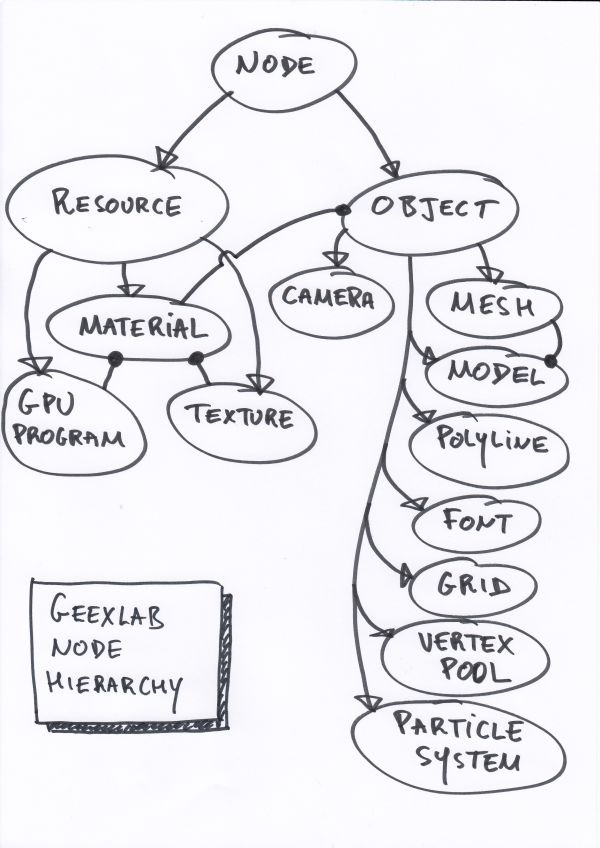 NODE
RESOURCE
OBJECT
CAMERA
MESH
MATERIAL
MODEL
GPU
PROGRAM
TEXTURE
POLYLINE
FONT
GRID
VERTEX
POOL
PARTICLE
SYSTEM
GEEXLAB
NODE
HIERARCHY